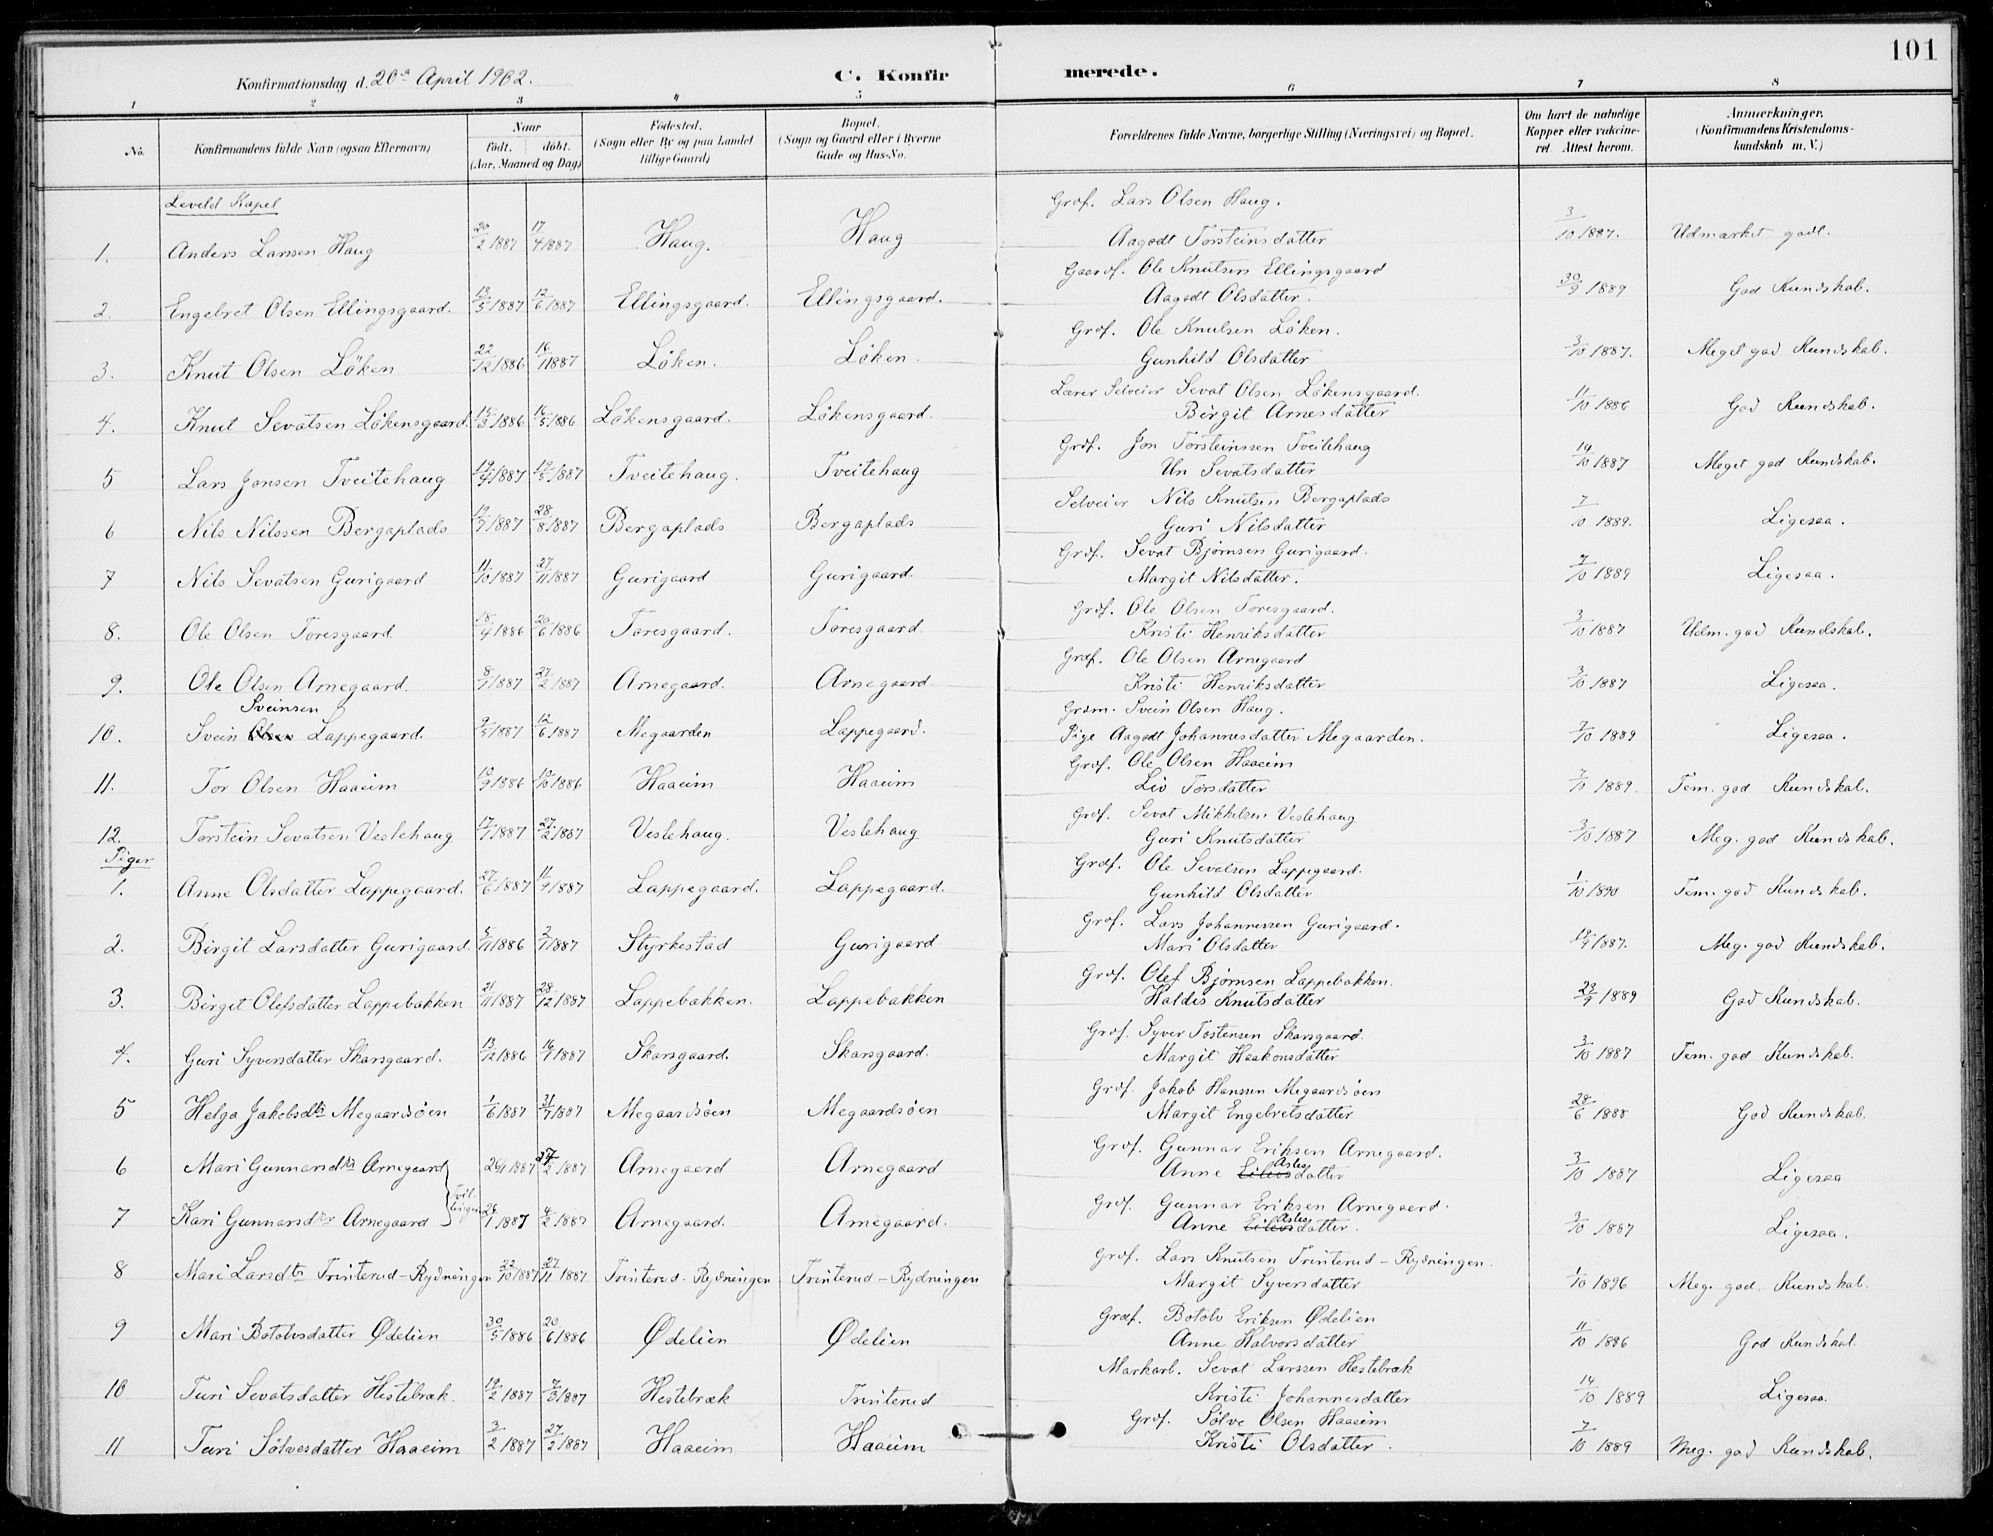 101
Konfirmationsdag d. 20de April 1902. C. Konfirmerede.
1 2 3 4 5 6 7 8
No. Konfirmandens fulde Navn (ogsaa Efternavn) Naar født. døbt. (Aar, Maaned og Dag) Fødested. (Sogn eller By og paa Landet tillige Gaard) Bopæl. (Sogn og Gaard eller i Byerne Gade og Hus-No. Forældrenes fulde Navne, borgerlige Stilling (Næringsvei) og Bopæl. Om havt de naturlige Kopper eller vakcineret. Attest herom. Anmærkninger. (Konfirmandens Kristendomskundskab m. V.)
Leveld Kapel
1. Anders Larssen Haug 20/2 1887 17/4 1887 Haug. Haug Grdf. Lars Olsen Haug. Aagodt Torsteinsdatter 3/10 1887. Udmærket godt.
2. Engebret Olsen Ellingsgaard. 13/5 1887 12/6 1887 Ellingsgaard. Ellingsgaard. Gaardf. Ole Knutsen Ellingsgaard Aagodt Olsdatter. 30/9 1889 God Kundskab.
3. Knut Olsen Löken 22/12 1886 16/1 1887 Löken. Löken. Grdf. Ole Knutsen Löken. Gunhild Olsdatter 3/10 1887. Meget god Kundskab.
4. Knut Sevatsen Lökensgaard 15/3 1886 16/5 1886 Lökensgaard. Lökensgaard. Lærer Selveier Sevat Olsen Lökensgaard. Birgit Arnesdatter 11/10 1886 God Kundskab.
5 Lars Jonsen Tveitehaug 19/4 1887 19/5 1887 Tveitehaug. Tveitehaug Grdf. Jon Torsteinssen Tveitehaug Un Sevatsdatter 14/10 1887 Meget god Kundskab.
6 Nils Nilssen Bergaplads 19/7 1887 28/8 1887 Bergaplads Bergaplads Selveier Nils Knutsen Bergaplads Guri Nilsdatter 7/10 1889. Ligesaa.
7 Nils Sevatsen Gurigaard 11/10 1887 27/11 1887 Gurigaard Gurigaard. Grdf. Sevat Bjørnsen Gurigaard. Margit Nilsdatter. 7/10 1889 Ligesaa.
8. Ole Olsen Toresgaard. 18/4 1886 20/6 1886 Toresgaard. Toresgaard. Grdf. Ole Olsen Toresgaard. Kristi Henriksdatter 3/10 1887 Udm. god Kundskab.
9. Ole Olsen Arnegaard. 8/1 1887 27/2 1887 Arnegaard. Arnegaard. Grdf. Ole Olsen Arnegaard Kristi Henriksdatter 3/10 1887 Ligesaa.
10. Svein Sveinsen Lappegaard. 9/5 1887 12/6 1887 Megaarden Lappegaard. Grdm. Svein Olsen Haug. Pige Aagodt Johannesdatter Megaarden. 7/10 1889 Ligesaa.
11. Tor Olsen Haaeim 10/9 1886 10/10 1886 Haaeim Haaeim Grdf. Ole Olsen Haaeim Liv Torsdatter 7/10 1889. Tem. god Kundskab.
12. Torstein Sevatsen Veslehaug 17/1 1887 27/2 1887 Veslehaug. Veslehaug Grdf. Sevat Mikkelsen Veslehaug Guri Knutsdatter 3/10 1887 Meg. god Kundskab.
Piger
1. Anne Olsdatter Lappegaard. 27/6 1887 11/9 1887 Lappegaard. Lappegaard. Grdf. Ole Sevatsen Lappegaard. Gunhild Olsdatter 1/10 1890 Tem. god Kundskab.
2. Birgit Larsdatter Gurigaard. 5/11 1886 2/1 1887 Styrkestad Gurigaard. Grdf. Lars Johannessen Gurigaard. Mari Olsdatter 1887. Meg. god Kundskab.
3. Birgit Olefsdatter Lappebakken 21/11 1887 28/12 1887 Lappebakken. Lappebakken Grdf. Olef Bjørnsen Lappebakken. Haldis Knutsdatter 23/9 1889 God Kundskab.
4. Guri Syversdatter Skarsgaard. 13/12 1886 16/1 1887 Skarsgaard. Skarsgaard. Grdf. Syver Tostensen Skarsgaard. Margit Haakonsdatter 3/10 1887 Tem. god Kundskab.
5 Helga Jakobsdtr Megaardsöen 1/6 1887 31/7 1887 Megaardsöen Megaardsöen Grdf. Jakob Hanssen Megaardsöen Margit Engebretsdatter 28/6 1888 God Kundskab.
6 Mari Gunnarsdtr Arnegaard Tvillinger 26/1 1887 27/2 1887 Arnegaard Arnegaard Grdf. Gunnar Eriksen Arnegaard. Anne Aslesdatter 3/10 1887 Ligesaa
7 Kari Gunnarsdtr Arnegaard 26/1 1887 4/2 1887 Arnegaard. Arnegaard. Grdf. Gunnar Eriksen Arnegaard. Anne Aslesdatter. 3/10 1887 Ligesaa.
8 Mari Larsdtr Trinterud-Rydningen 22/10 1887 27/11 1887 Trinterud-Rydningen Trinterud-Rydningen Grdf. Lars Knutsen Trinterud-Rydningen. Margit Syversdatter 1/10 1896 Meg. god Kundskab.
9 Mari Botolvsdatter Ødelien 30/5 1886 20/6 1886 Ødelien Ødelien Grdf. Botolv Eriksen Ødelien Anne Halvorsdatter 11/10 1886 God Kundskab.
10 Turi Sevatsdatter Hestebræk. 19/2 1887 7/3 1887 Hestebræk Trinterud Markarb. Sevat Larssen Hestebræk Kristi Johannesdatter 14/10 1889 Ligesaa.
11 Turi Sölvesdatter Haaeim 3/2 1887 27/2 1887 Haaeim Haaeim Grdf. Sölve Olsen Haaeim Kristi Olsdatter. 7/10 1889 Meg. god Kundskab.